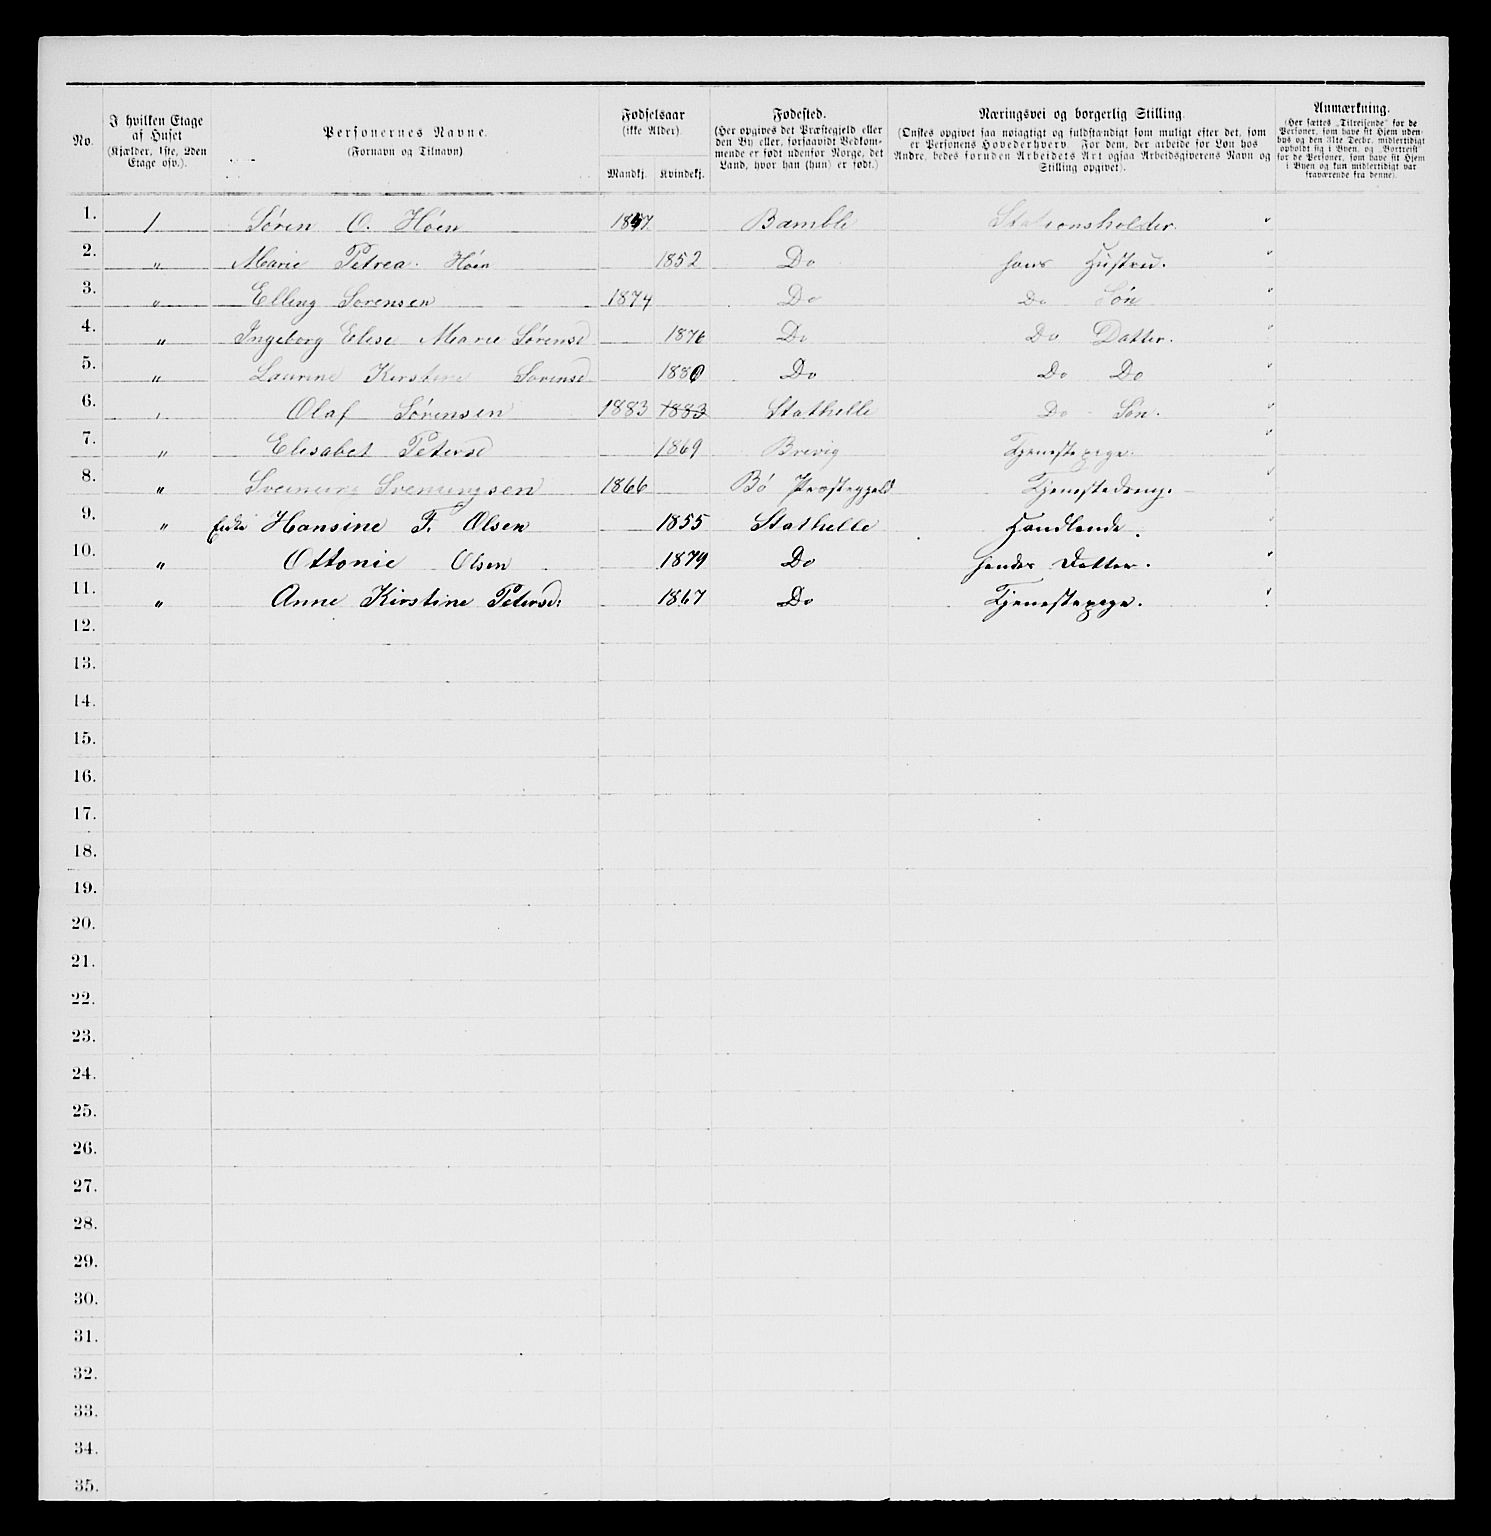 No.
I hvilken Etage
af Huset
(Kjælder, 1ste, 2den
Etage osv.).
Personernes Navne.
(Fornavn og Tilnavn)
Fødselsaar
(ikke Alder).
Mandkj. Kvindekj.
Fødested.
(Her opgives det Præstegjeld eller
den By eller, forsaavidt Vedkom-
mende er født udenfor Norge, det
Land, hvor han (hun) er født.)
Næringsvei og borgerlig Stilling.
(Ønskes opgivet saa nøiagtigt og fuldstændigt som muligt efter det, som
er Personens Hovederhverv. For dem, der arbeide for Løn hos
Andre, bedes foruden Arbeidets Art ogsaa Arbeidsgiverens Navn og
Stilling opgivet).
Anmærkning.
(Her sættes „Tilreisende" for de
Personer, som have sit Hjem uden-
bys og den 31te Decbr. midlertidigt
opholdt sig i Byen, og „Bortreist"
for de Personer, som have sit Hjem
i Byen og kun midlertidigt var
fraværende fra denne).
1. 1 Søren O. Høen 1847 Bamble Stationsholder. "
2. " Marie Petrea Høen 1852 Do hans Hustru. "
3. " Elling Sørensen 1874 Do Do Søn "
4. " Ingeborg Elise Marie Sørensd 1876 Do Do Datter. "
5. " Laurine Kirstine Sørensd 1880 Do Do Do "
6. " Olaf Sørensen 1883 1883 Stathelle Do Søn. "
7. " Elisabet Petersd 1869 Brevig Tjenestepige. "
8. " Sveinung Sveinungsen 1866 Bø Præstegjeld Tjenestedreng. "
9. " Enke Hansine F. Olsen 1855 Stathelle Handlende. "
10. " Ottonie Olsen 1879 Do hendes Datter. "
11. " Anne Kirstine Petersd: 1867 Do Tjenestepige. "
12.
13.
14.
15.
16.
17.
18.
19.
20.
21.
22.
23.
24.
25.
26.
27.
28.
29.
30.
31.
32.
33.
34.
35.